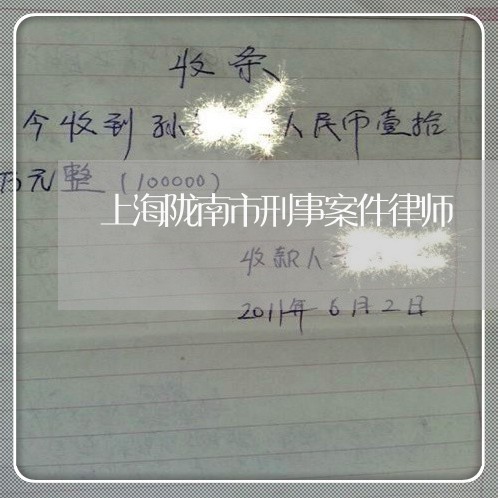 收条
今收到孙 人民币壹拾
万元整(100000)
上海陇南市刑事案件律师
收款人
2011年6月2日